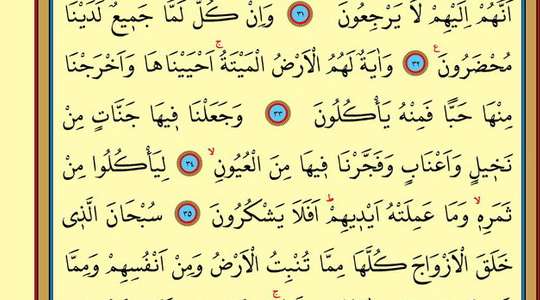 اَنَّهُمْ اِلَيْهِمْ لَا يَرْجِعُونَ ﴿٣١﴾ وَاِنْ كُلٌّ لَمَّا جَم۪يعٌ لَدَيْنَا
مُحْضَرُونَ ﴿٣٢﴾ وَاٰيَةٌ لَهُمُ الْاَرْضُ الْمَيْتَةُ اَحْيَيْنَاهَا وَاَخْرَجْنَا
مِنْهَا حَبًّا فَمِنْهُ يَأْكُلُونَ ﴿٣٣﴾ وَجَعَلْنَا ف۪يهَا جَنَّاتٍ مِنْ
نَخ۪يلٍ وَاَعْنَابٍ وَفَجَّرْنَا ف۪يهَا مِنَ الْعُيُونِۙ ﴿٣٤﴾ لِيَأْكُلُوا مِنْ
ثَمَرِه۪ۙ وَمَا عَمِلَتْهُ اَيْد۪يهِمْۜ اَفَلَا يَشْكُرُونَ ﴿٣٥﴾ سُبْحَانَ الَّذ۪ي
خَلَقَ الْاَزْوَاجَ كُلَّهَا مِمَّا تُنْبِتُ الْاَرْضُ وَمِنْ اَنْفُسِهِمْ وَمِمَّا